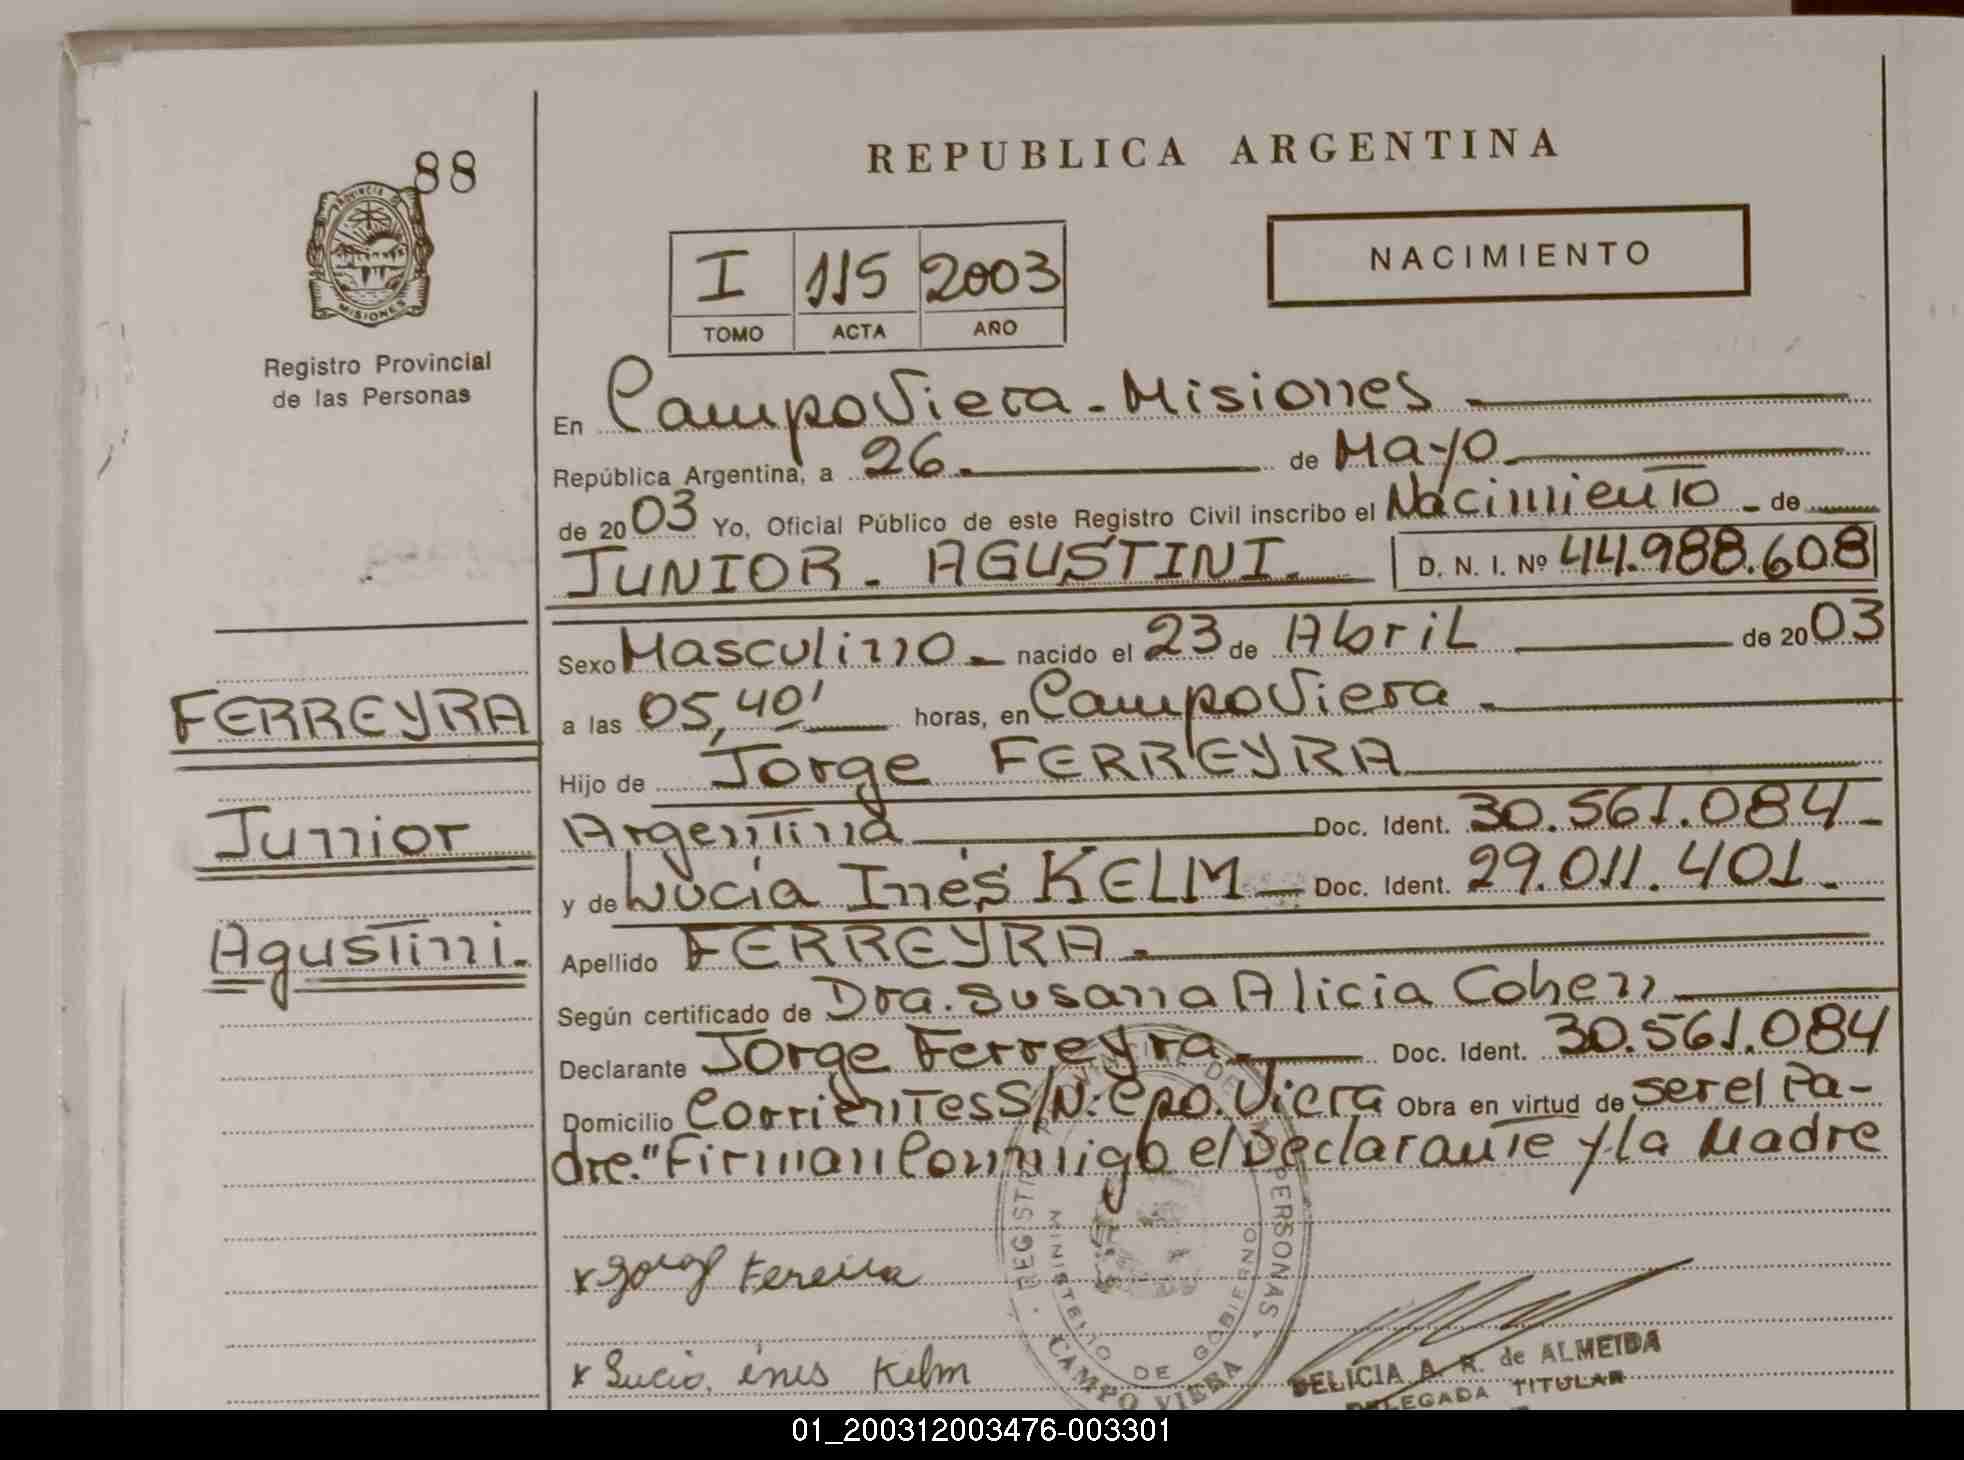 88
REPUBLICA ARGENTINA
PROVINCIA DE
MISIONES
Registro Provincial
de las Personas
I 115 2003
TOMO ACTA AÑO
NACIMIENTO
En Campo Viera - Misiones
República Argentina, a 26 de Mayo
de 2003 Yo, Oficial Público de este Registro Civil inscribo el Nacimiento - de
JUNIOR - AGUSTINI. D. N. I. Nº 44.988.608
Sexo Masculino nacido el 23 de Abril de 2003
FERREYRA
a las 05,40' horas, en Campo Viera
Hijo de Jorge FERREYRA
Junior
Argentina Doc. Ident. 30.561.084
y de Lucia Inés KELM Doc. Ident. 29.011.401.
Agustini.
Apellido FERREYRA
Según certificado de Dra. Susana Alicia Cohen
Declarante Jorge Ferreyra Doc. Ident. 30.561.084
Domicilio Corrientes S/N: Cpo. Viera Obra en virtud de ser el Pa-
dre." Firman Conmigo el Declarante y la Madre
REGISTRO PERSONAS
MINISTERIO DE GOBIERNO
CAMPO VIERA
x Jorge Fereira
x Lucia, ines Kelm
DELICIA A. R. de ALMEIDA
DELEGADA TITULAR
01_200312003476-003301